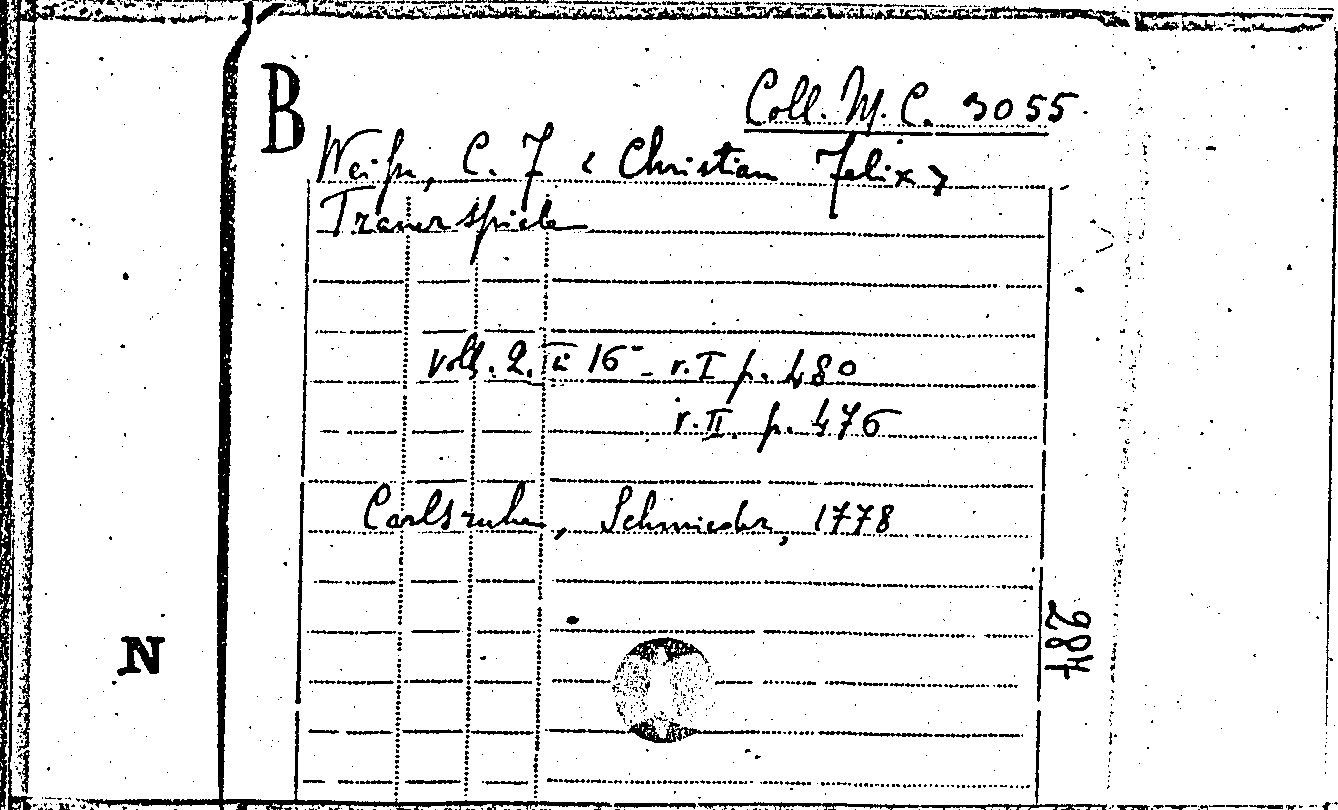 B
Coll. M. C. 3055
Weiße, C. F < Christian Felix >
Trauerspiele
voll. 2. in 16° - v. I p. 480
v. II. p. 476
Carlsruhe, Schmieder, 1778
284
N